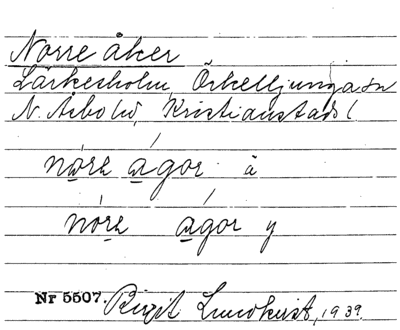 Norre åker
Lärkesholm, Örkelljunga sn
N. Åsbo hd, Kristianstads l
nǫrə ągor å
nǫrə ągor y
Nr 5507. Birgit Lundkvist, 1939.